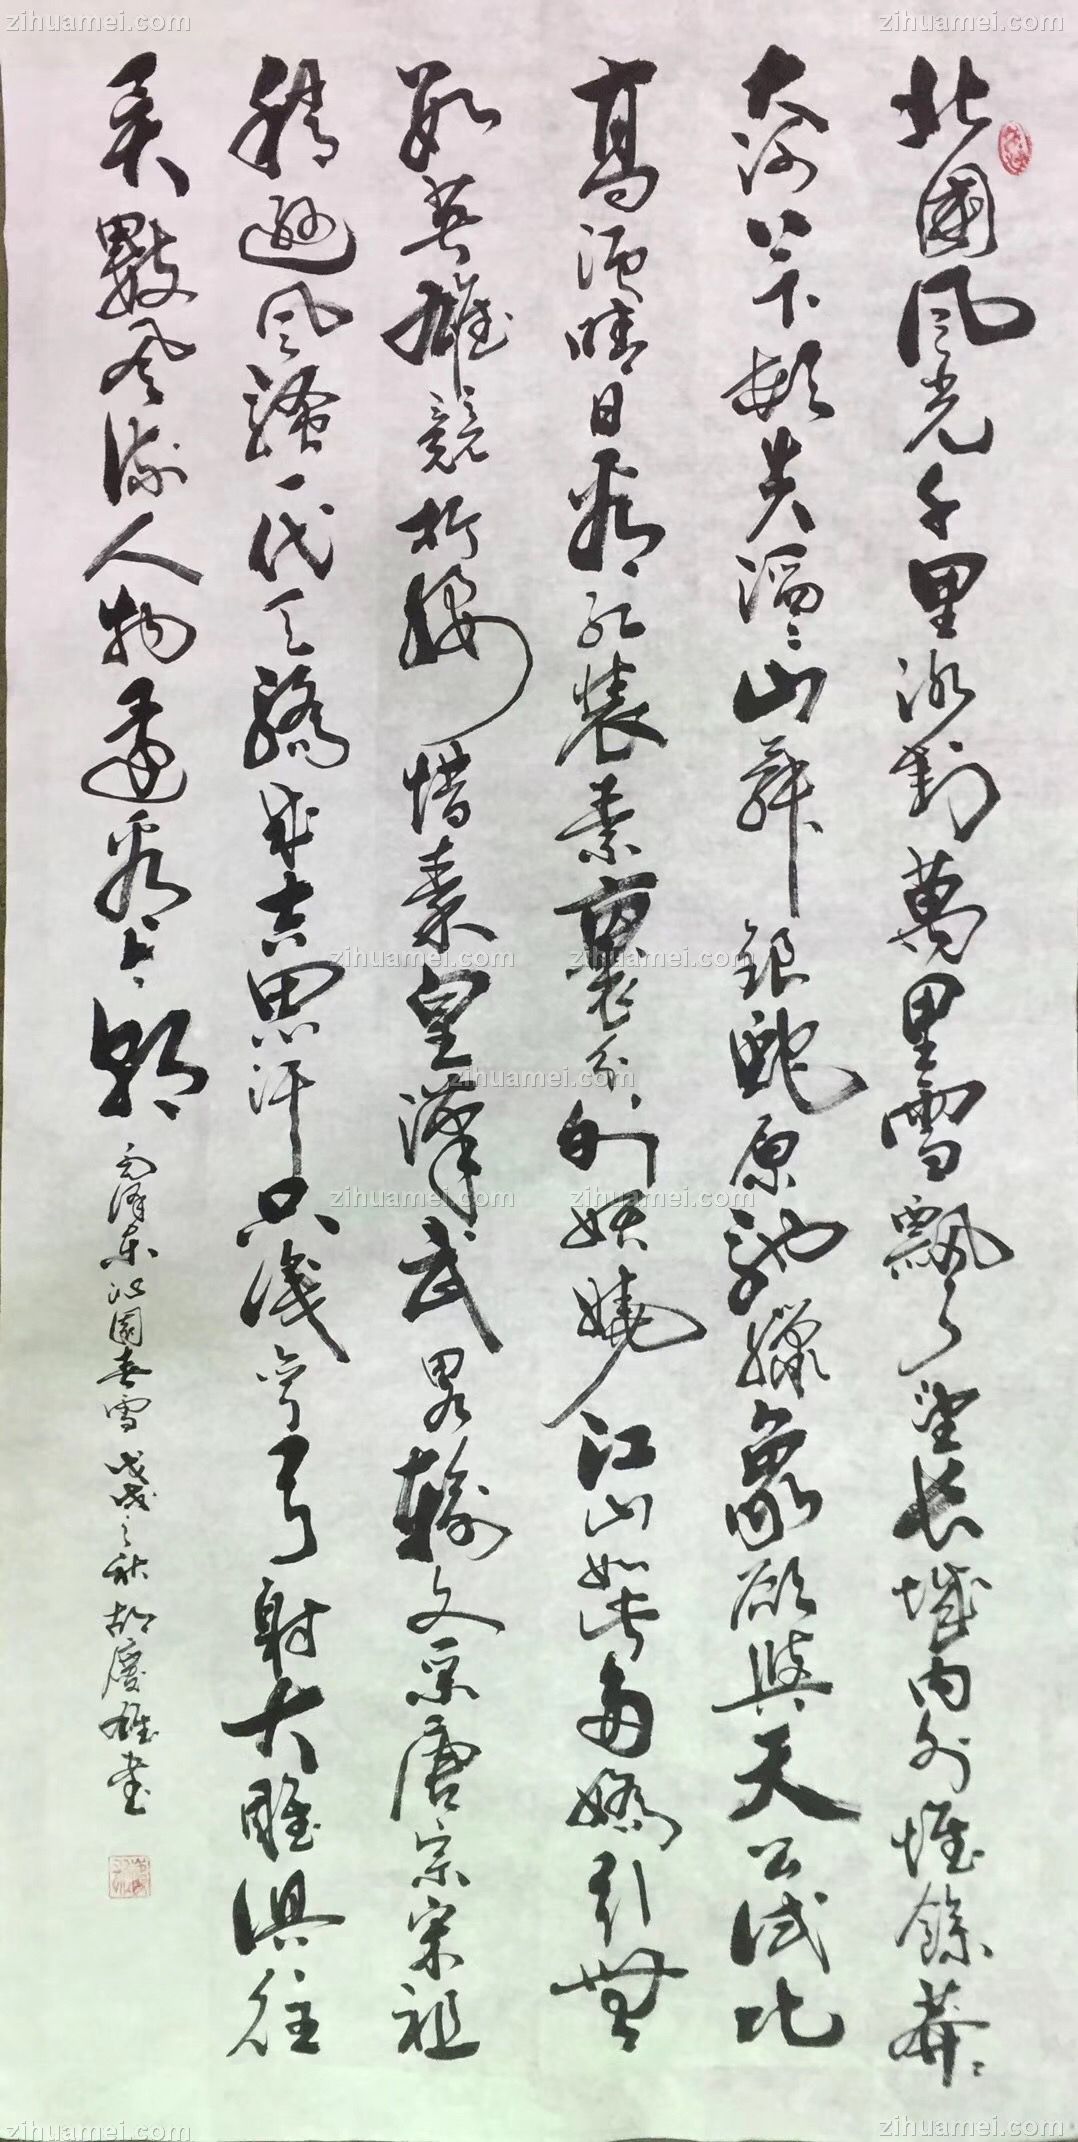 北國風光千里冰封萬里雪飄々望長城內外惟餘莽々
大河上下頓失滔々山舞銀蛇原馳蠟象欲與天公試比
高須晴日看紅裝素裹分外妖嬈江山如此多嬌引無
數英雄競折腰惜秦皇漢武畧輸文采唐宗宋祖
稍遜風騷一代天驕成吉思汗只識彎弓射大雕俱往
矣數風流人物還看今朝
毛澤東沁園春雪戊戌之秋胡慶雄書
zihuamei.com
zihuamei.com
zihuamei.com
zihuamei.com
zihuamei.com
zihuamei.com
zihuamei.com
zihuamei.com
zihuamei.com